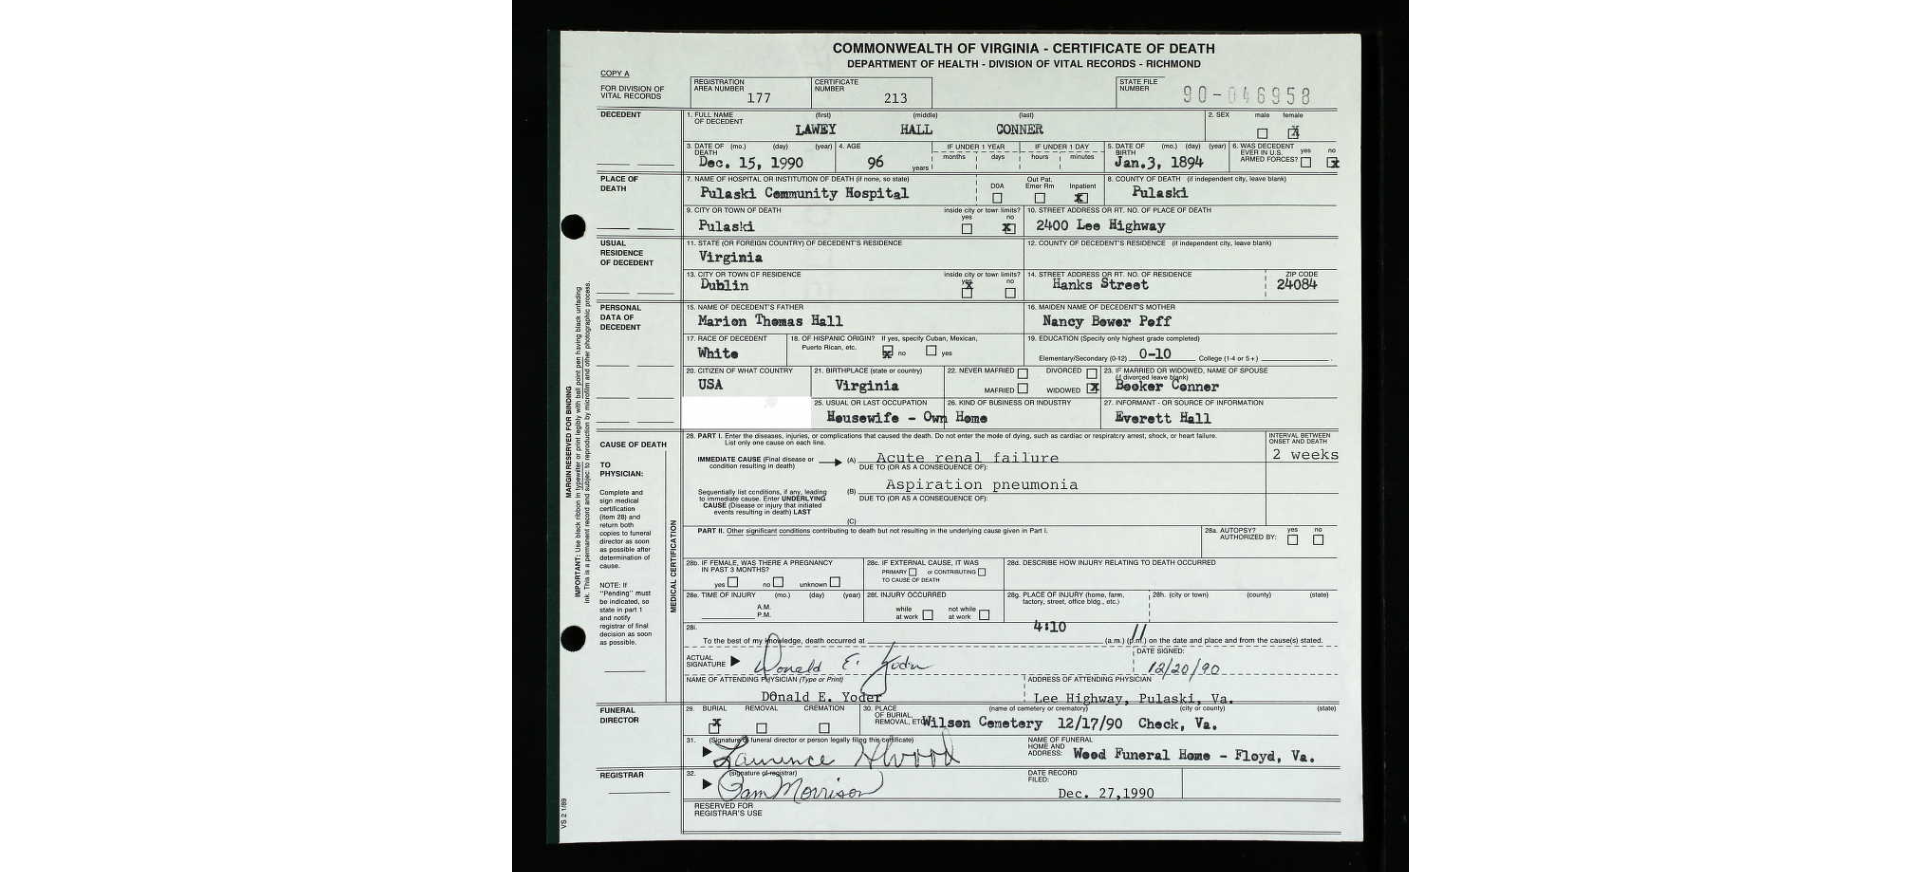 COMMONWEALTH OF VIRGINIA - CERTIFICATE OF DEATH
DEPARTMENT OF HEALTH - DIVISION OF VITAL RECORDS - RICHMOND
COPY A
FOR DIVISION OF VITAL RECORDS
REGISTRATION AREA NUMBER 177
CERTIFICATE NUMBER 213
STATE FILE NUMBER 90-046958
DECEDENT
1. FULL NAME OF DECEDENT (first) (middle) (last)
LAWEY HALL CONNER
2. SEX male female X
3. DATE OF DEATH (mo.) (day) (year)
Dec. 15, 1990
4. AGE 96 years
IF UNDER 1 YEAR months days
IF UNDER 1 DAY hours minutes
5. DATE OF BIRTH (mo.) (day) (year)
Jan.3, 1894
6. WAS DECEDENT EVER IN U.S. ARMED FORCES? yes no X
PLACE OF DEATH
7. NAME OF HOSPITAL OR INSTITUTION OF DEATH (if none, so state)
Pulaski Community Hospital
DOA Out Pat. Emer Rm Inpatient X
8. COUNTY OF DEATH (if independent city, leave blank)
Pulaski
9. CITY OR TOWN OF DEATH
Pulaski
inside city or town limits? yes no X
10. STREET ADDRESS OR RT. NO. OF PLACE OF DEATH
2400 Lee Highway
USUAL RESIDENCE OF DECEDENT
11. STATE (OR FOREIGN COUNTRY) OF DECEDENT'S RESIDENCE
Virginia
12. COUNTY OF DECEDENT'S RESIDENCE (if independent city, leave blank)
13. CITY OR TOWN OF RESIDENCE
Dublin
inside city or town limits? yes X no
14. STREET ADDRESS OR RT. NO. OF RESIDENCE
Hanks Street
ZIP CODE
24084
PERSONAL DATA OF DECEDENT
15. NAME OF DECEDENT'S FATHER
Marion Thomas Hall
16. MAIDEN NAME OF DECEDENT'S MOTHER
Nancy Bower Poff
17. RACE OF DECEDENT
White
18. OF HISPANIC ORIGIN? If yes, specify Cuban, Mexican, Puerto Rican, etc.
X no yes
19. EDUCATION (Specify only highest grade completed)
Elementary/Secondary (0-12) 0-10 College (1-4 or 5+)
20. CITIZEN OF WHAT COUNTRY
USA
21. BIRTHPLACE (state or country)
Virginia
22. NEVER MARRIED DIVORCED
MARRIED WIDOWED X
23. IF MARRIED OR WIDOWED, NAME OF SPOUSE (if divorced leave blank)
Booker Conner
25. USUAL OR LAST OCCUPATION
26. KIND OF BUSINESS OR INDUSTRY
Housewife - Own Home
27. INFORMANT - OR SOURCE OF INFORMATION
Everett Hall
CAUSE OF DEATH
TO PHYSICIAN:
Complete and sign medical certification (item 28) and return both copies to funeral director as soon as possible after determination of cause.
NOTE: If "Pending" must be indicated, so state in part 1 and notify registrar of final decision as soon as possible.
MEDICAL CERTIFICATION
28. PART I. Enter the diseases, injuries, or complications that caused the death. Do not enter the mode of dying, such as cardiac or respiratory arrest, shock, or heart failure.
List only one cause on each line.
INTERVAL BETWEEN ONSET AND DEATH
IMMEDIATE CAUSE (Final disease or condition resulting in death)
(A) Acute renal failure
2 weeks
DUE TO (OR AS A CONSEQUENCE OF):
Sequentially list conditions, if any, leading to immediate cause. Enter UNDERLYING CAUSE (Disease or injury that initiated events resulting in death) LAST
(B) Aspiration pneumonia
DUE TO (OR AS A CONSEQUENCE OF):
(C)
PART II. Other significant conditions contributing to death but not resulting in the underlying cause given in Part I.
28a. AUTOPSY? AUTHORIZED BY: yes no
28b. IF FEMALE, WAS THERE A PREGNANCY IN PAST 3 MONTHS?
yes no unknown
28c. IF EXTERNAL CAUSE, IT WAS
PRIMARY or CONTRIBUTING
TO CAUSE OF DEATH
28d. DESCRIBE HOW INJURY RELATING TO DEATH OCCURRED
28e. TIME OF INJURY (mo.) (day) (year)
A.M.
P.M.
28f. INJURY OCCURRED
while at work not while at work
28g. PLACE OF INJURY (home, farm, factory, street, office bldg., etc.)
28h. (city or town) (county) (state)
28i.
To the best of my knowledge, death occurred at 4:10 (a.m.) (p.m.) on the date and place and from the cause(s) stated.
ACTUAL SIGNATURE Donald E. Yoder
DATE SIGNED:
12/20/90
NAME OF ATTENDING PHYSICIAN (Type or Print)
Donald E. Yoder
ADDRESS OF ATTENDING PHYSICIAN
Lee Highway, Pulaski, Va.
FUNERAL DIRECTOR
29. BURIAL X REMOVAL CREMATION
30. PLACE OF BURIAL, REMOVAL, ETC. (name of cemetery or crematory) (city or county) (state)
Wilson Cemetery 12/17/90 Check, Va.
31. (Signature of funeral director or person legally filing this certificate)
Laurence H Wood
NAME OF FUNERAL HOME AND ADDRESS:
Wood Funeral Home - Floyd, Va.
REGISTRAR
32. (signature of registrar)
Pam Morrison
DATE RECORD FILED:
Dec. 27,1990
RESERVED FOR REGISTRAR'S USE
MARGIN RESERVED FOR BINDING
IMPORTANT: Use black ribbon in typewriter or print legibly with ball point pen having black unfading
ink. This is a permanent record and subject to reproduction by microfilm and other photographic process.
VS 2 1/89